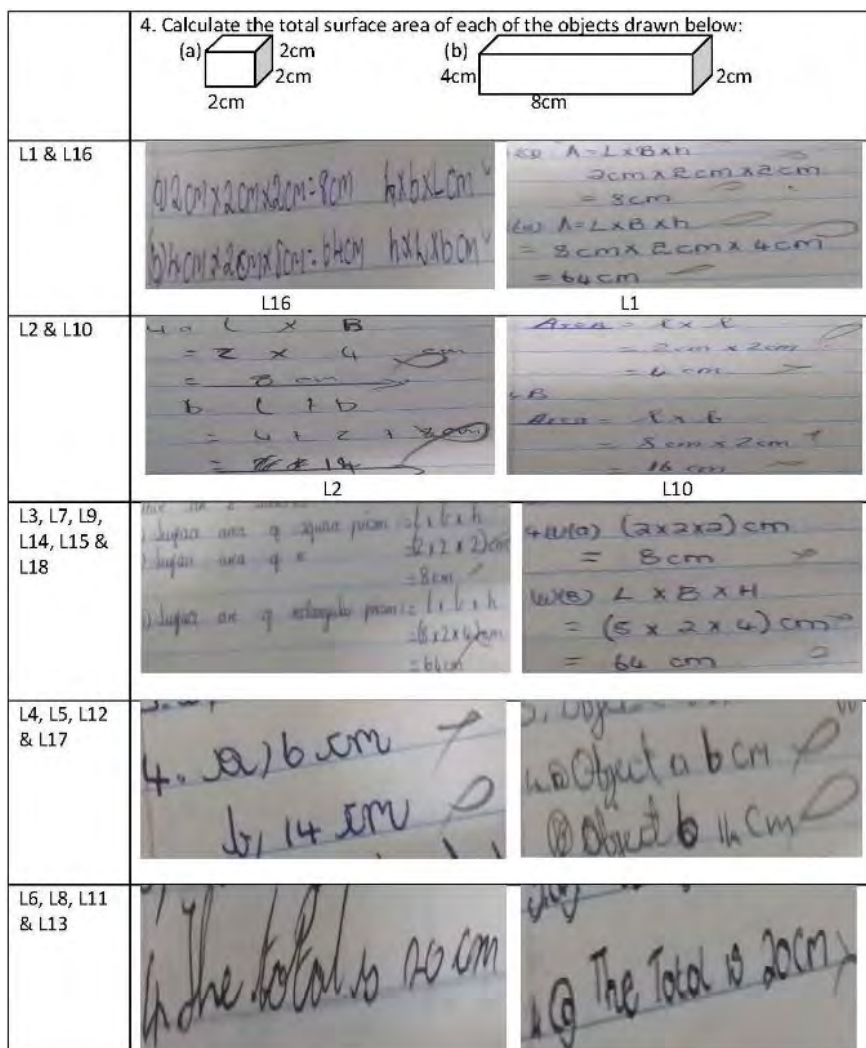 4. Calculate the total surface area of each of the objects drawn below:
(a) 2cm (b)
4cm 2cm 2cm
2cm 8cm
L1 & L16
a) 2cm x 2cm x 2cm = 8cm h x b x L cm
b) 4cm x 2cm x 8cm = 64cm h x L x b cm
L16
A = L x B x h
2cm x 2cm x 2cm
= 8cm
A = L x B x h
= 8cm x 2cm x 4cm
= 64cm
L1
L2 & L10
4 a L x B
= 2 x 4 cm
= 8 cm
b L + b
= 4 + 2 + 8cm
= 14
L2
Area = l x
= 2cm x 2cm
= 4 cm
B
Area = l x b
= 8cm x 2cm
= 16 cm
L10
L3, L7, L9,
L14, L15 &
L18
Surface area of square prism = l x b x h
Surface area of = (2 x 2 x 2) cm
= 8cm
Surface are of rectangular prism = l x b x h
= (8 x 2 x 4) cm
= 64cm
(a) (2x2x2) cm
= 8cm
(B) L x B x H
= (8 x 2 x 4) cm
= 64 cm
L4, L5, L12
& L17
4. a) 6 cm
b, 14 cm
Object a 6 cm
Object b 14 cm
L6, L8, L11
& L13
4 The total is 20 cm
4 The Total is 20cm